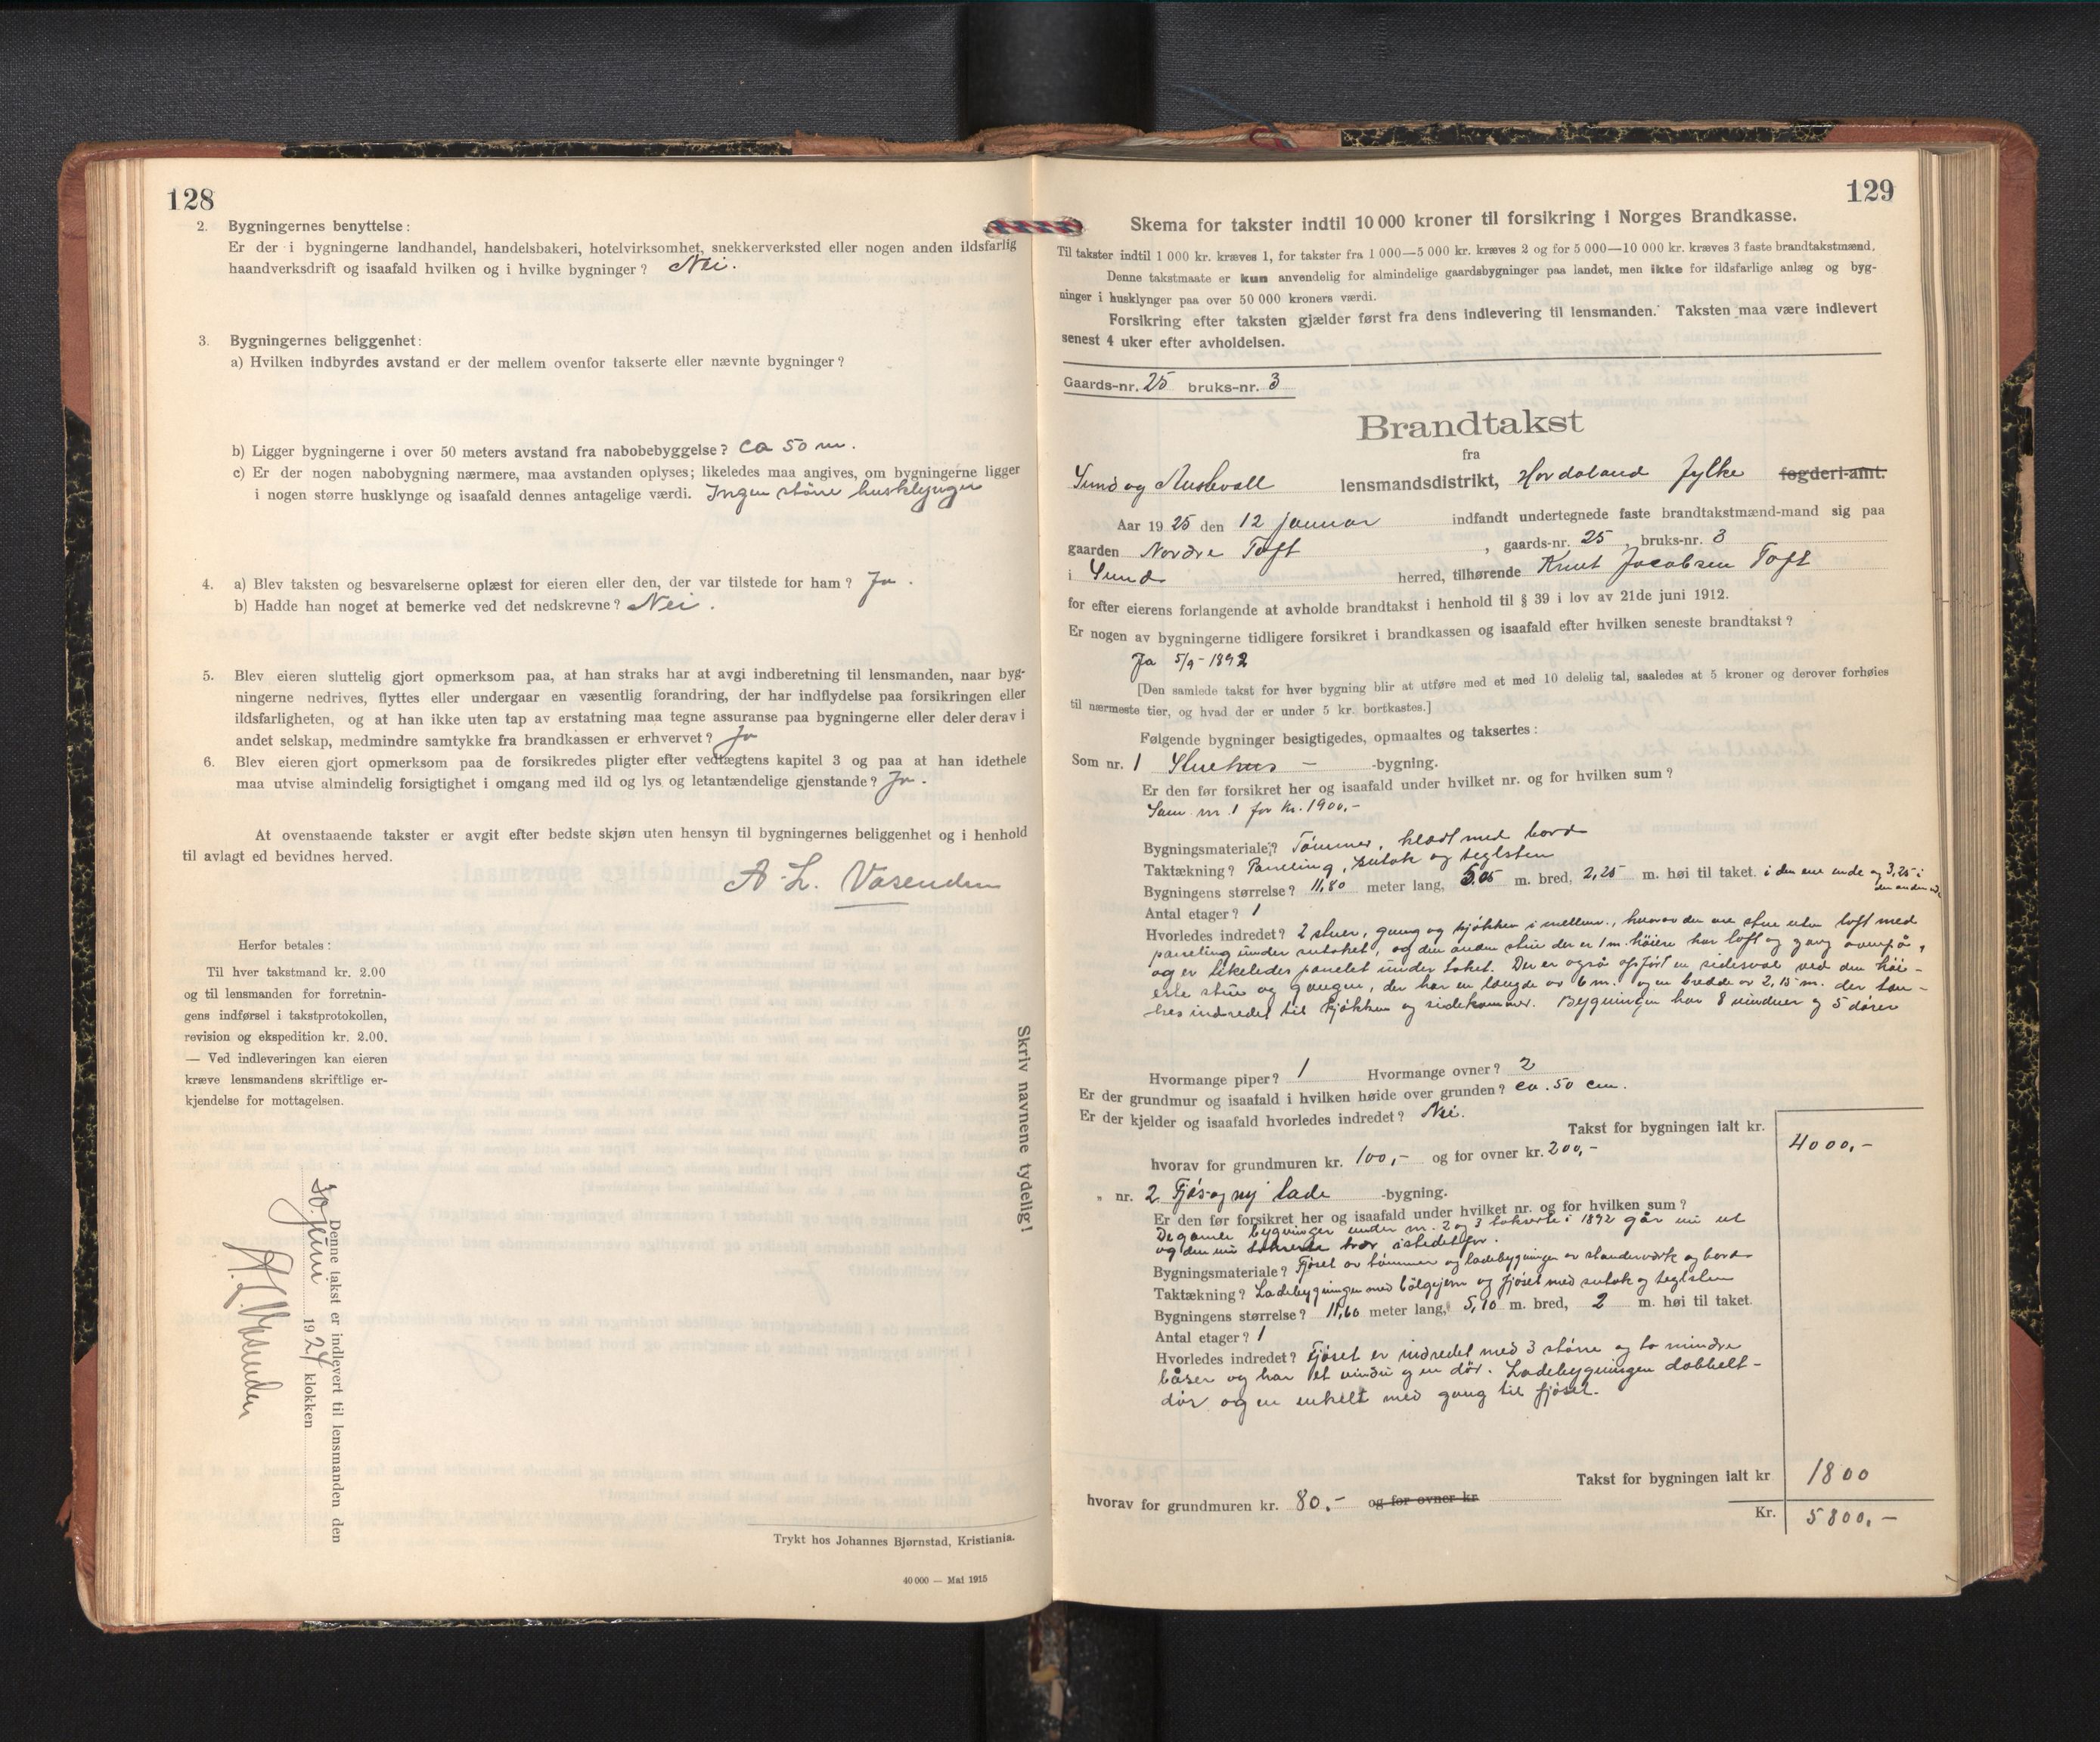 128
2. Bygningernes benyttelse:
Er der i bygningerne landhandel, handelsbakeri, hotelvirksomhet, snekkerverksted eller nogen anden ildsfarlig
haandverksdrift og isaafald hvilken og i hvilke bygninger? Nei.
3. Bygningernes beliggenhet:
a) Hvilken indbyrdes avstand er der mellem ovenfor takserte eller nævnte bygninger?
b) Ligger bygningerne i over 50 meters avstand fra nabobebyggelse? ca 50 m.
c) Er der nogen nabobygning nærmere, maa avstanden oplyses; likeledes maa angives, om bygningerne ligger
i nogen større husklynge og isaafald dennes antagelige værdi. Ingen större husklynger
4. a) Blev taksten og besvarelserne oplæst for eieren eller den, der var tilstede for ham? Ja.
b) Hadde han noget at bemerke ved det nedskrevne? Nei.
5. Blev eieren sluttelig gjort opmerksom paa, at han straks har at avgi indberetning til lensmanden, naar byg-
ningerne nedrives, flyttes eller undergaar en væsentlig forandring, der har indflydelse paa forsikringen eller
ildsfarligheten, og at han ikke uten tap av erstatning maa tegne assuranse paa bygningerne eller deler derav i
andet selskap, medmindre samtykke fra brandkassen er erhvervet? Ja
6. Blev eieren gjort opmerksom paa de forsikredes pligter efter vedtægtens kapitel 3 og paa at han idethele
maa utvise almindelig forsigtighet i omgang med ild og lys og letantændelige gjenstande? Ja.
At ovenstaaende takster er avgit efter bedste skjøn uten hensyn til bygningernes beliggenhet og i henhold
til avlagt ed bevidnes herved.
A. L. Vasenden
Herfor betales:
Til hver takstmand kr. 2.00
og til lensmanden for forretnin-
gens indførsel i takstprotokollen,
revision og ekspedition kr. 2.00.
— Ved indleveringen kan eieren
kræve lensmandens skriftlige er-
kjendelse for mottagelsen.
Skriv navnene tydelig!
Denne takst er indlevert til lensmanden den
30. juni 1924 klokken
A. L. Vasenden
Trykt hos Johannes Bjørnstad, Kristiania.
40 000 — Mai 1915
129
Skema for takster indtil 10 000 kroner til forsikring i Norges Brandkasse.
Til takster indtil 1 000 kr. kræves 1, for takster fra 1 000—5 000 kr. kræves 2 og for 5 000—10 000 kr. kræves 3 faste brandtakstmænd.
Denne takstmaate er kun anvendelig for almindelige gaardsbygninger paa landet, men ikke for ildsfarlige anlæg og byg-
ninger i husklynger paa over 50 000 kroners værdi.
Forsikring efter taksten gjælder først fra dens indlevering til lensmanden. Taksten maa være indlevert
senest 4 uker efter avholdelsen.
Gaards-nr. 25 bruks-nr. 3
Brandtakst
fra
Sund og Austevoll lensmandsdistrikt, Hordaland fylke fogderi-amt.
Aar 1925 den 12 januar indfandt undertegnede faste brandtakstmænd-mand sig paa
gaarden Nordre Toft, gaards-nr. 25, bruks-nr. 3
i Sund herred, tilhørende Knut Jacobsen Toft
for efter eierens forlangende at avholde brandtakst i henhold til § 39 i lov av 21de juni 1912.
Er nogen av bygningerne tidligere forsikret i brandkassen og isaafald efter hvilken seneste brandtakst?
Ja 5/9-1892
[Den samlede takst for hver bygning blir at utføre med et med 10 delelig tal, saaledes at 5 kroner og derover forhøies
til nærmeste tier, og hvad der er under 5 kr. bortkastes.]
Følgende bygninger besigtigedes, opmaaltes og taksertes:
Som nr. 1 Stuehus - -bygning.
Er den før forsikret her og isaafald under hvilket nr. og for hvilken sum?
Som nr. 1 for kr. 1900,-
Bygningsmateriale? Tömmer, klædt med bord
Taktækning? Paneling, sutak og teglsten
Bygningens størrelse? 11,80 meter lang, 5,05 m. bred, 2,25 m. høi til taket. i den ene ende og 3,25 i
den anden ende
Antal etager? 1
Hvorledes indredet? 2 stuer, gang og kjökken i mellem, hvorav den ene stue uten loft med
paneling under sutaket, og den anden stue der er 1 m. höiere har loft og gang ovenpå,
og er likeledes panelet under taket. Der er også opfört en sidesval ved den höi-
este stue og gangen, der har en længde av 6 m. og en bredde av 2,15 m. der
indredet til kjökken og sidekammer. Bygningen har 8 vinduer og 5 dörer
Hvormange piper? 1 Hvormange ovner? 2
Er der grundmur og isaafald i hvilken høide over grunden? ca. 50 cm.
Er der kjelder og isaafald hvorledes indredet? Nei.
Takst for bygningen ialt kr. 4000,-
hvorav for grundmuren kr. 100,- og for ovner kr. 200,-
„ nr. 2 Fjös og ny lade -bygning.
Er den før forsikret her og isaafald under hvilket nr. og for hvilken sum?
De gamle bygninger under nr. 2 og 3 takserte i 1892 går nu ut
og den nu takserte trær istedetfor.
Bygningsmateriale? Fjöset av tömmer og ladebygningen av standerværk og bord
Taktækning? Ladebygningen med bölgejern og fjöset med sutak og teglsten
Bygningens størrelse? 11,60 meter lang, 5,70 m. bred, 2 m. høi til taket.
Antal etager? 1
Hvorledes indredet? Fjöset er indredet med 3 större og to mindre
båser og har et vindu og en dör. Ladebygningen dobbelt-
dör og en enkelt med gang til fjöset.
Takst for bygningen ialt kr 1800
hvorav for grundmuren kr. 80.- og for ovner kr
Kr. 5800,-